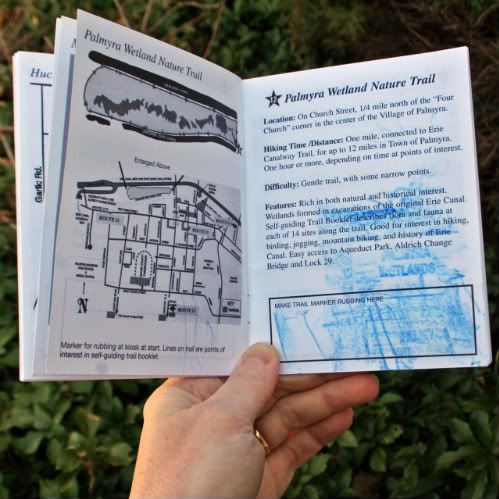 Huc
Garlic Rd.
Palmyra Wetland Nature Trail
Enlarged Above
ROUTE 21
ROUTE 31
N
KEY
Marker for rubbing at kiosk at start. Lines on trail are points of
interest in self-guiding trail booklet.
Palmyra Wetland Nature Trail
Location: On Church Street, 1/4 mile north of the "Four
Church" corner in the center of the Village of Palmyra.
Hiking Time /Distance: One mile, connected to Erie
Canalway Trail, for up to 12 miles in Town of Palmyra.
One hour or more, depending on time at points of interest.
Difficulty: Gentle trail, with some narrow points.
Features: Rich in both natural and historical interest.
Wetlands formed in excavations of the original Erie Canal.
Self-guiding Trail Booklet describes flora and fauna at
each of 14 sites along the trail. Good for interest in hiking,
birding, jogging, mountain biking, and history of Erie
Canal. Easy access to Aqueduct Park, Aldrich Change
Bridge and Lock 29.
WETLANDS
MAKE TRAIL MARKER RUBBING HERE